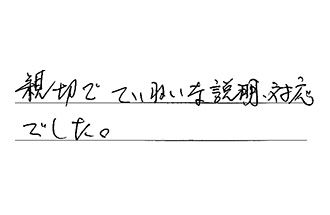 親切で ていねいな説明、対応
でした。